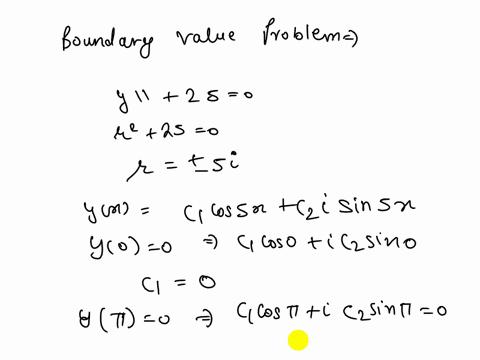 Boundary Value Problem ⇒
y11 + 25 = 0
r² + 25 = 0
r = ± 5i
y(x) = C1 cos5x + C2 i sin5x
y(0) = 0 ⇒ C1 cos0 + i C2 sin0
C1 = 0
y(π) = 0 ⇒ C1 cos π + i C2 sin π = 0